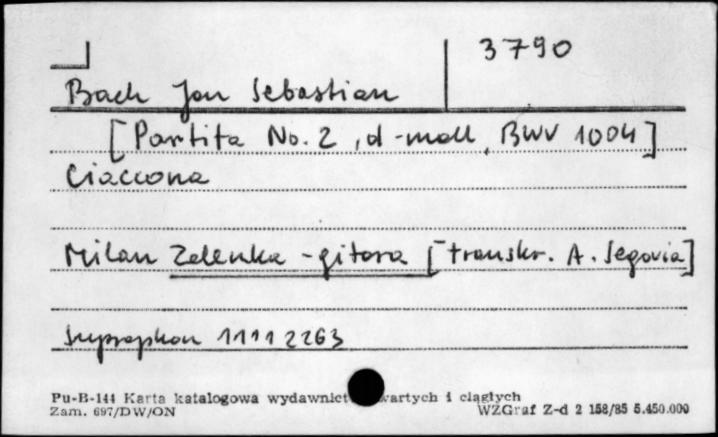 3790
Bach Jan Sebastian
[Partita No. 2, d-moll, BWV 1004]
Ciaccona
Milan Zelenka - gitara [transkr. A. Segovia]
Supraphon 11112263
Pu-B-144 Karta katalogowa wydawnict wartych i ciągłych
Zam. 697/DW/ON WZGraf Z-d 2 158/85 5.450.000